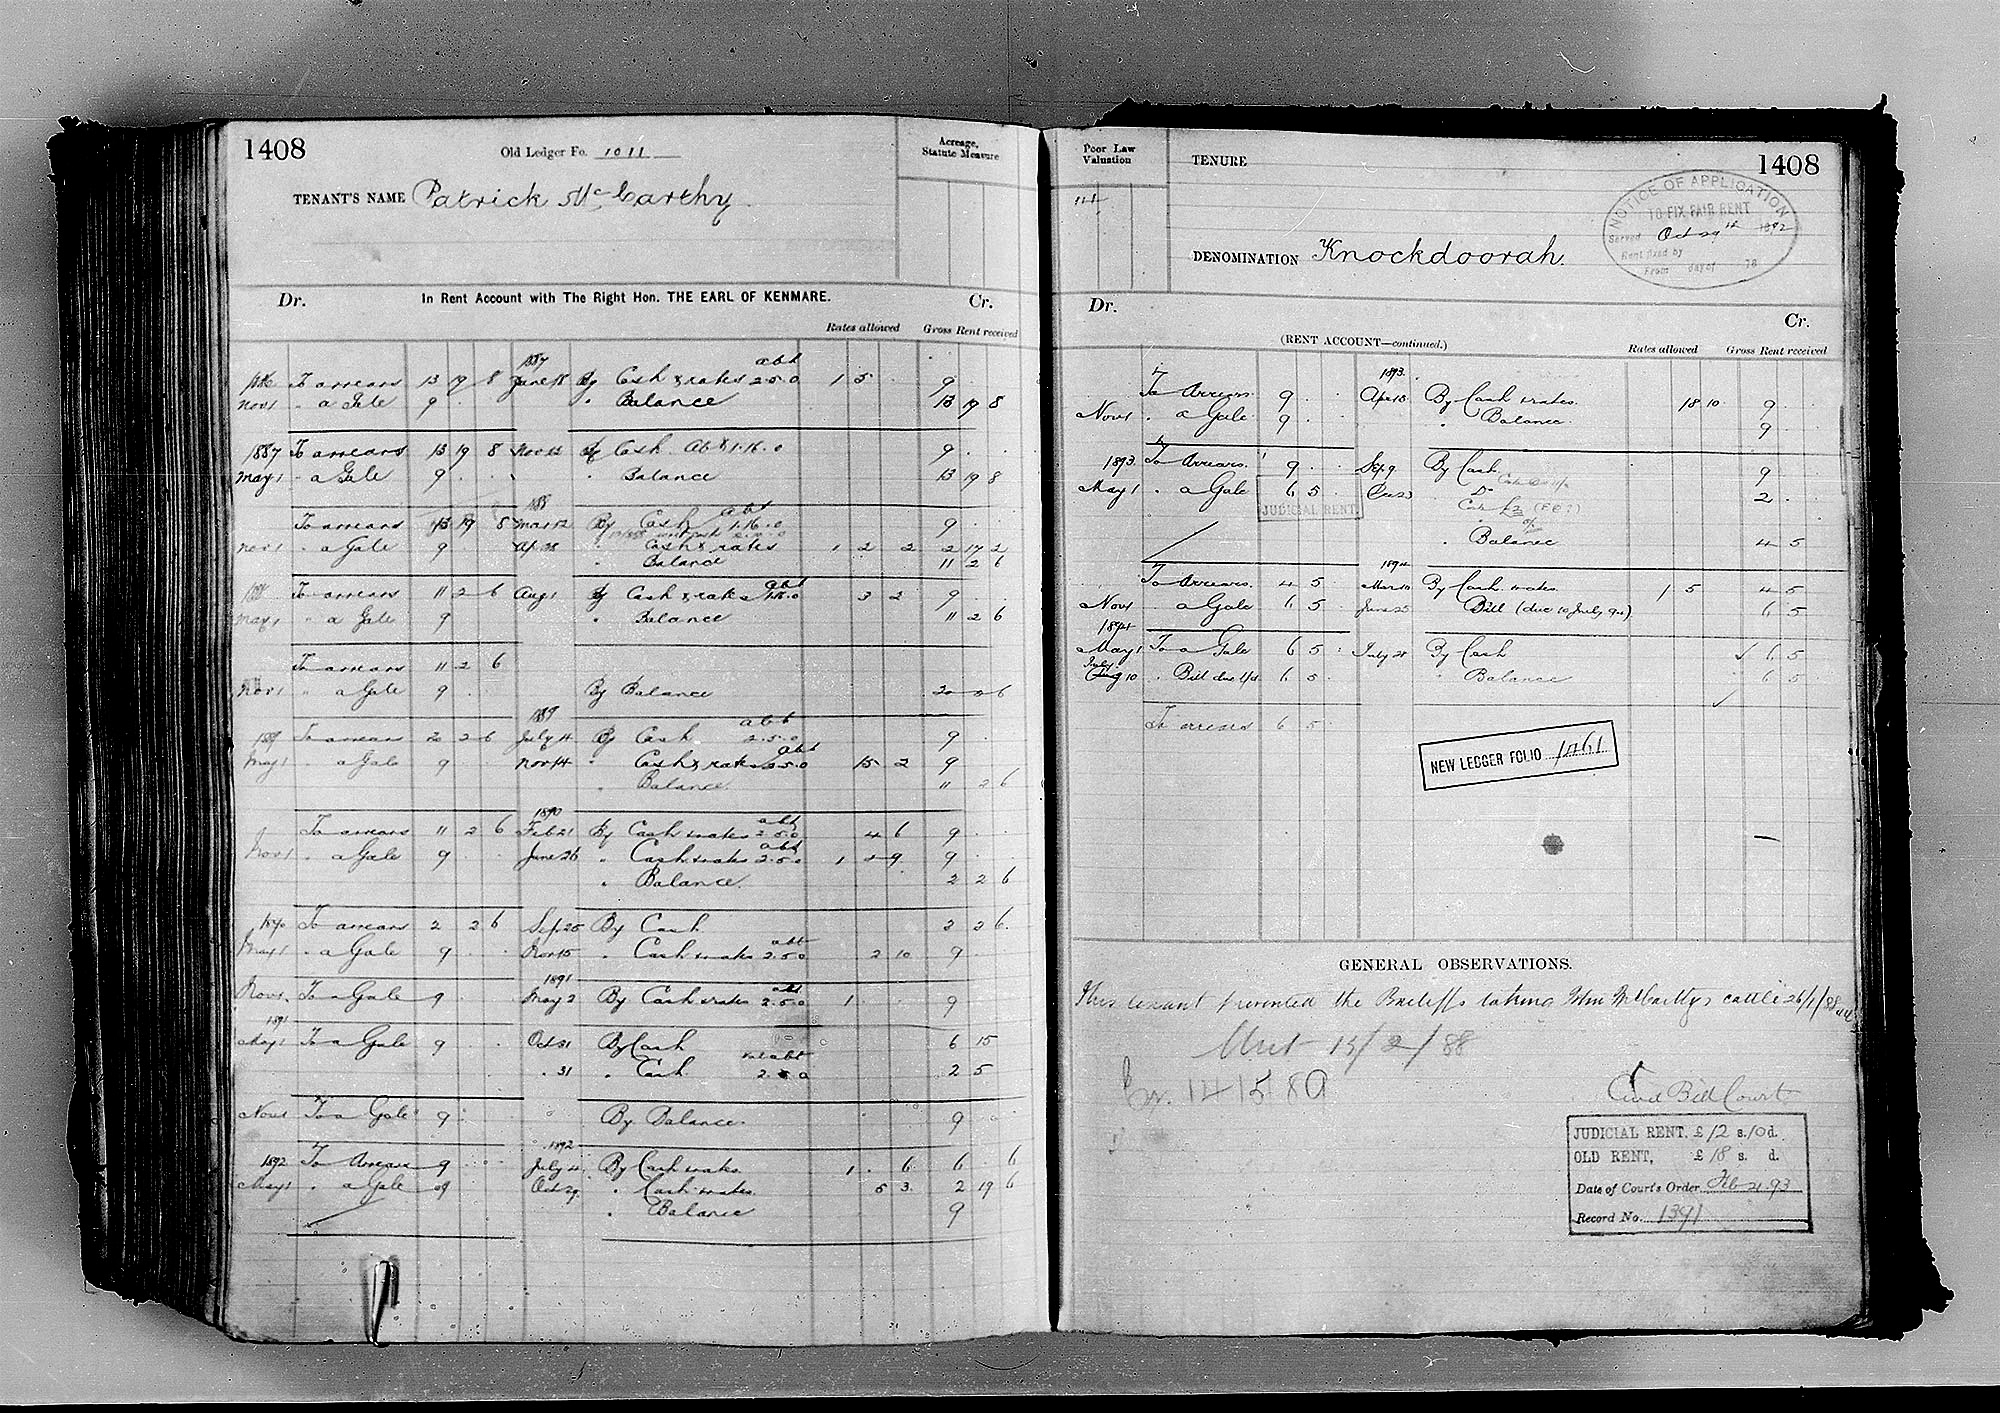 1408
Old Ledger Fo. 1011
Acreage, Statute Measure
TENANT'S NAME Patrick McCarthy
Dr. In Rent Account with The Right Hon. THE EARL OF KENMARE. Cr.
Rates allowed Gross Rent received
1887 abt
1886 To arrears 13 19 8 June 18 By Cash & rates 2.5.0 1 5 . 9 . .
Nov 1 " a Gale 9 . . " Balance 13 19 8
1887 To arrears 13 19 8 By Cash Abt 1.16.0 9 . .
May 1 " a Gale 9 . . " Balance 13 19 8
1888 abt
To arrears 13 19 8 Mar 12 By Cash 1.16.0 9 . .
Nov 1 " a Gale 9 . . Ap 28 " Cash & rates 1 2 2 2 17 2
" Balance 11 2 6
1888 To arrears 11 2 6 Aug 1 By Cash & rates abt 3 2 9 . .
May 1 " a Gale 9 " Balance 11 2 6
To arrears 11 2 6
Nov 1 " a Gale 9 . . By Balance 20 2 6
1889 abt
1889 To arrears 20 2 6 July 4 By Cash 2.5.0 9
May 1 " a Gale 9 . . Nov 14 " Cash & rates abt 2.5.0 15 2 9
" Balance. 11 2 6
1890 abt
To arrears 11 2 6 Feb 21 By Cash & rates 2.5.0 4 6 9 . .
Nov 1 " a Gale 9 . . June 26 " Cash & rates abt 2.5.0 1 9 9 . .
" Balance. 2 2 6
1890 To arrears 2 2 6 Sep 25 By Cash 2 2 6
May 1 " a Gale 9 . . Nov 15 " Cash & rates abt 2.5.0 2 10 9 . .
1891 abt
Nov 1 To a Gale 9 . . May 2 By Cash & rates 2.5.0 1 . . 9 . .
1891
May 1 To a Gale 9 . . Oct 31 By Cash 6 15
" 31 " Cash abt 2.5.0 2 5
Nov 1 To a Gale 9 . . By Balance. 9 . .
1892
1892 To Arrears 9 . . July 4 By Cash & rates 1 . 6 6 . 6
May 1 " a Gale 9 . . Oct 29 " Cash & rates 5 3 2 19 6
" Balance 9
Poor Law Valuation
TENURE
1408
NOTICE OF APPLICATION
TO FIX FAIR RENT
Served Oct 29th 1892
Rent fixed by
From day of 18
DENOMINATION Knockdoorah.
Dr. Cr.
(RENT ACCOUNT—continued.)
Rates allowed Gross Rent received
1893
To Arrears 9 . . Apr 13 By Cash & rates. 18 10 9 . .
Nov 1 " a Gale 9 . . " Balance. 9
1893 To Arrears. 9 . . Sep 9 By Cash 9 . .
May 1 " a Gale 6 5 . " Do 2 . .
JUDICIAL RENT
" Balance 4 5
1894
To Arrears. 4 5 . Mar 10 By Cash & rates 1 5 4 5
Nov 1 " a Gale 6 5 . June 25 Bill (due 10 July 94) 6 5
1894
May 1 To a Gale 6 5 . July 28 By Cash 6 5
July 10 " Bill due 6 5 . " Balance 6 5
To arrears 6 5
NEW LEDGER FOLIO 1461
GENERAL OBSERVATIONS.
This tenant prevented the Bailiffs taking McCarthy's cattle 26/1/88
Writ 15/2/88
14158A
Civil Bill Court
JUDICIAL RENT, £ 12 s. 10 d.
OLD RENT, £ 18 s. d.
Date of Court's Order Feb 21. 93
Record No. 1391